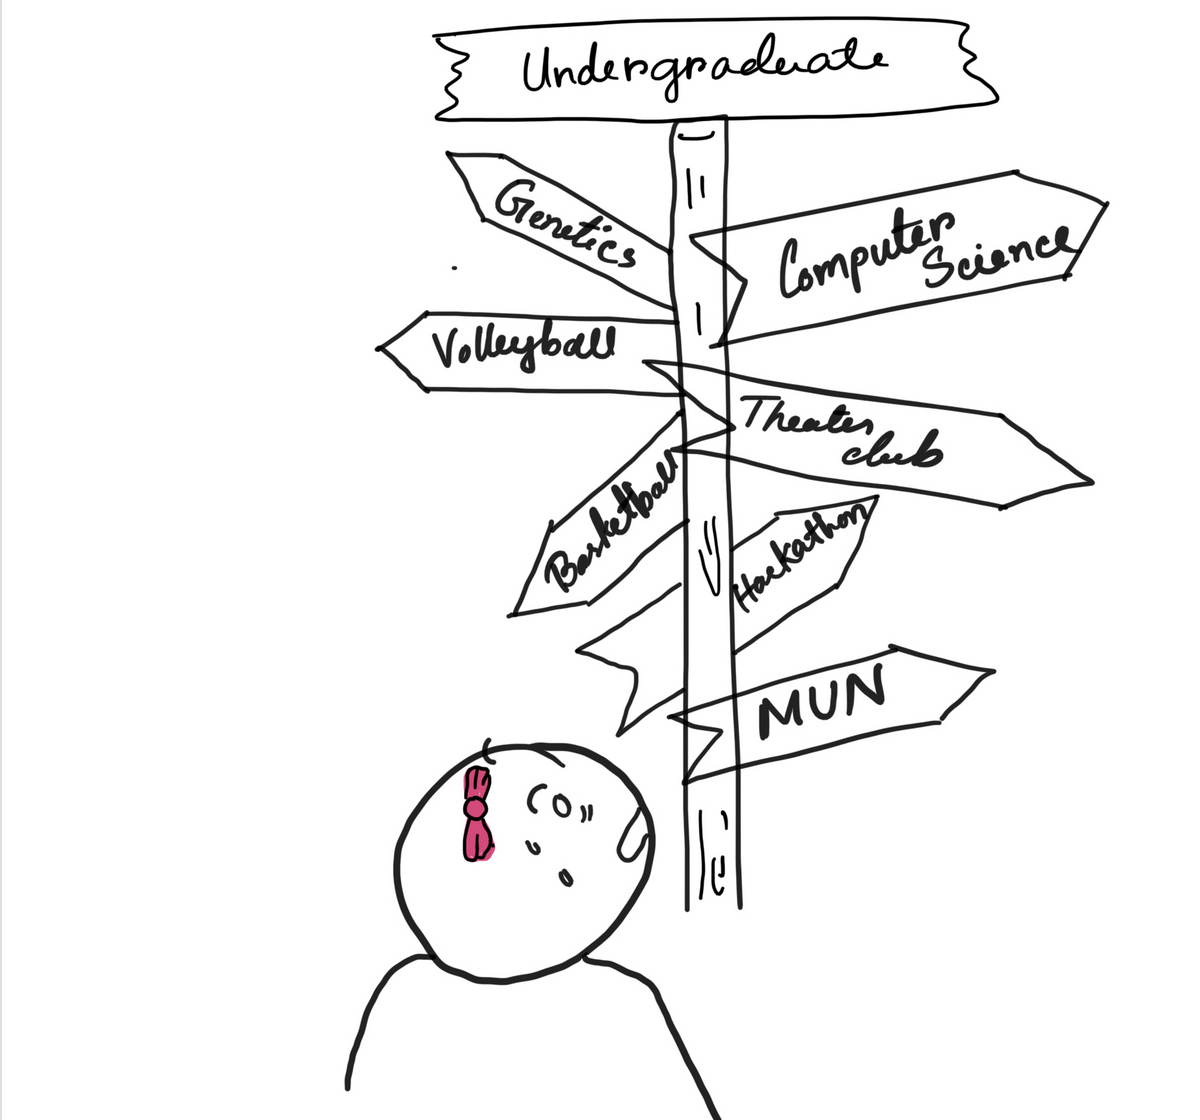 Undergraduate
Genetics
Computer
Science
Volleyball
Theater
club
Basketball
Hackathon
MUN